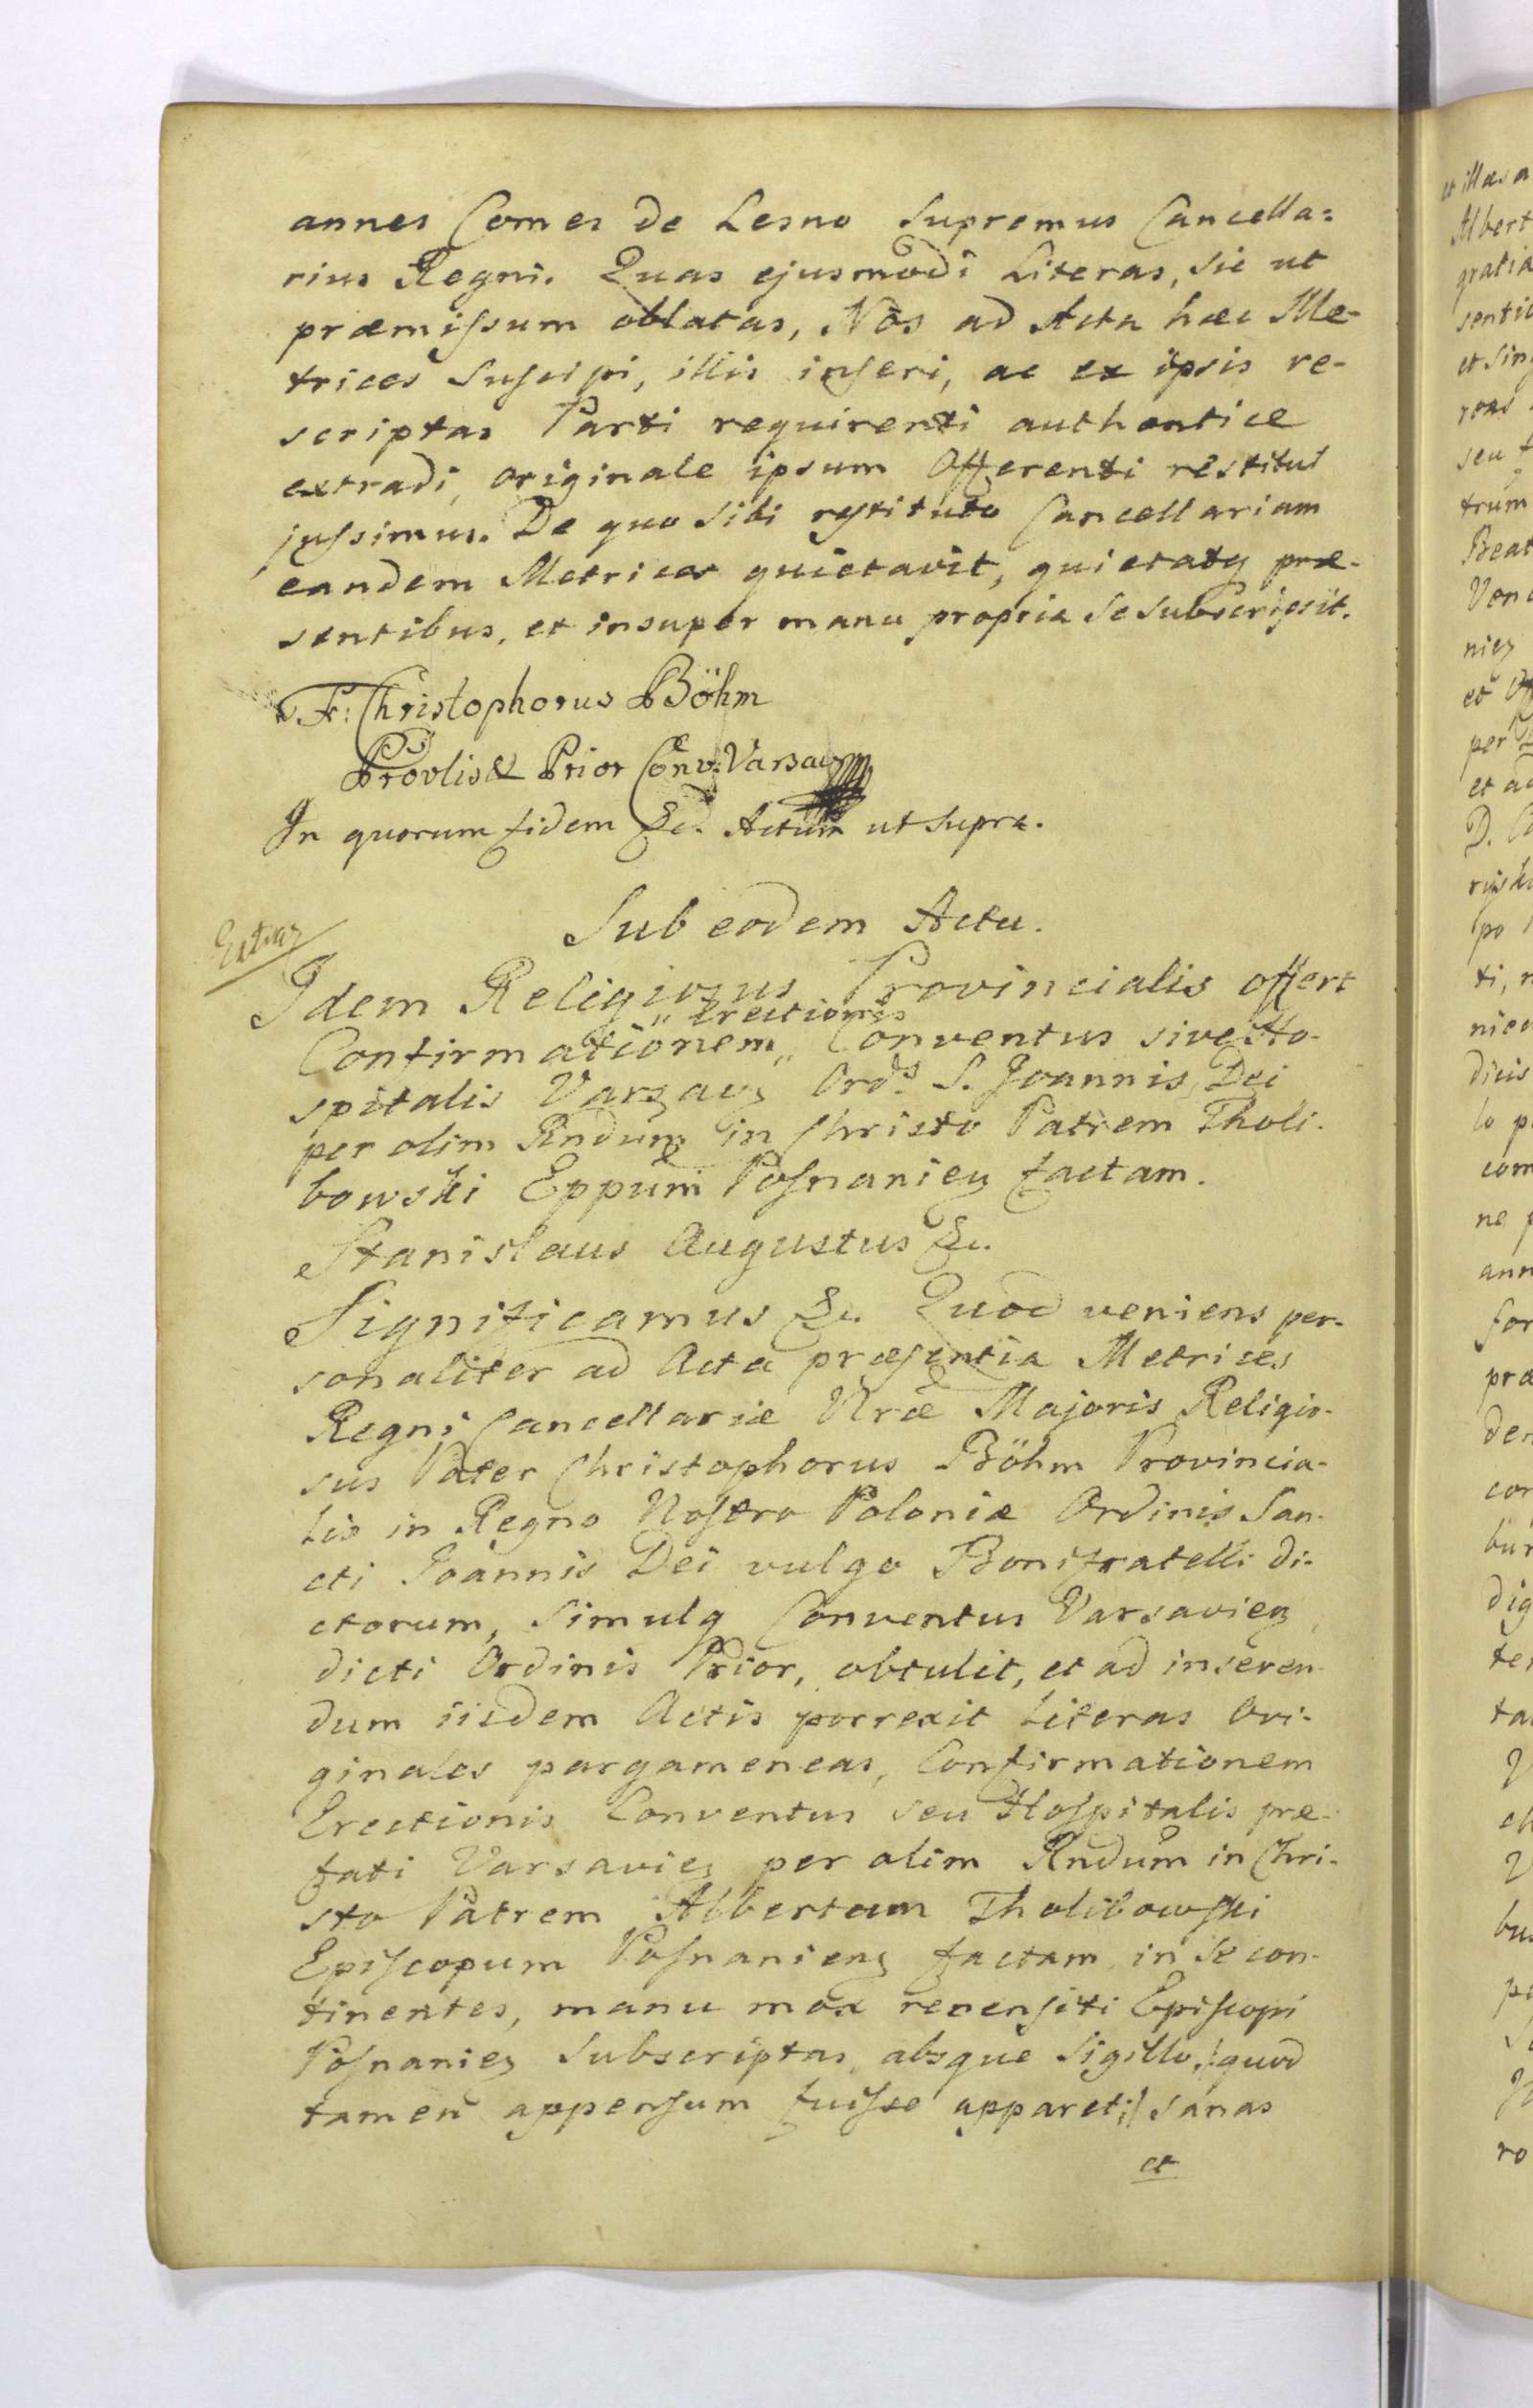 annes Comes de Lesno Supremus Cancella=
rius Regni. Quas ejusmodi Literas, sic ut
præmiſsum oblatas, Nos ad Acta hæc Me-
trices Suſcipi, illis inſeri, ac ex ipsis re-
scriptas Parti requirenti authentice
extradi, originale ipsum Offerenti restitui
juſsimus. De quo Sibi reſtituto Cancellariam
eandem Metrices quietavit, quietatq præ-
sentibus, et insuper manu propria Se Subscripsit.
Fr: Christophorus Böhm
Provlis & Prior Conv: Varsav
In quorum fidem &c. Actum ut Supra.
Sub eodem Actu.
Idem Religiosus Provincialis offert
Confirmationem „Erectionis Conventus sive Ho-
spitalis Varsavz Ordis S. Joannis Dei
per olim Rndum in Christo Patrem Tholi-
bowski Eppum Poſnaniez factam.
Stanislaus Augustus &c.
Significamus &c. Quod veniens per-
sonaliter ad Acta præſentia Metrices
Regni Cancellariæ Nræ Majoris Religio-
sus Pater Christophorus Böhm Provincia-
lis in Regno Noſtro Poloniæ Ordinis San-
cti Joannis Dei vulgo Bonifratelli di-
ctorum, Simulq Conventus Varsaviez
dicti Ordinis Prior, obtulit, et ad inseren-
dum iisdem Actis porrexit Literas Ori-
ginales pargameneas, Confirmationem
Erectionis Conventus seu Hoſpitalis præ-
fati Varsaviez per olim Rndum in Chri-
sto Patrem Albertum Tholibowſki
Epiſcopum Poſnanienz factam in Se con-
tinentes, manu mox recenſiti Epiſcopi
Poſnaniez Subscriptas, absque Sigillo, /:quod
tamen appenſum fuiſse apparet:/ Sanas
et